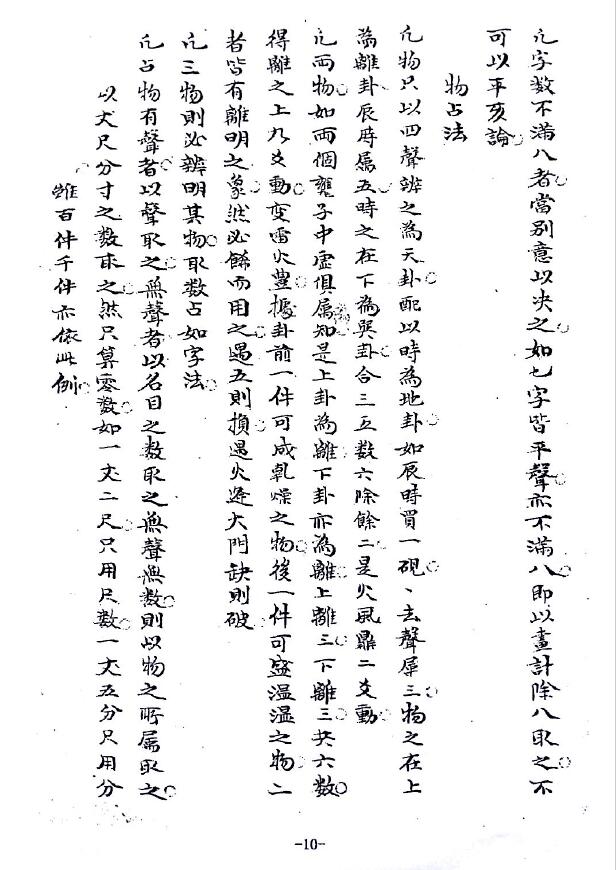 凡字数不滿八者當別意以决之如七字皆平聲亦不滿八即以畫計除八取之不
可以平亥論
物占法
凡物只以四聲辨之為天卦配以時為地卦如辰時買一硯、去聲屬三物之在上
為離卦辰時属五時之在下為巽卦合三五数六除餘二是火風鼎二爻動
凡両物如兩個甕子中虛俱属知是上卦為離下卦亦為離上離三下離三共六數
得離之上九爻動変雷火豊據卦前一件可成乾燥之物後一件可盛温湿之物二
者皆有離明之象然必餙而用之遇五則損遇火逆大門缺則破
凡三物則必辨明其物取数占如字法
凡占物有聲者以聲取之無聲者以名目之数取之無聲無数則以物之所属取之
以丈尺分寸之数取之然只算零数如一丈二尺只用尺數一丈五分尺用分
雖百件千件亦依此例
-10-